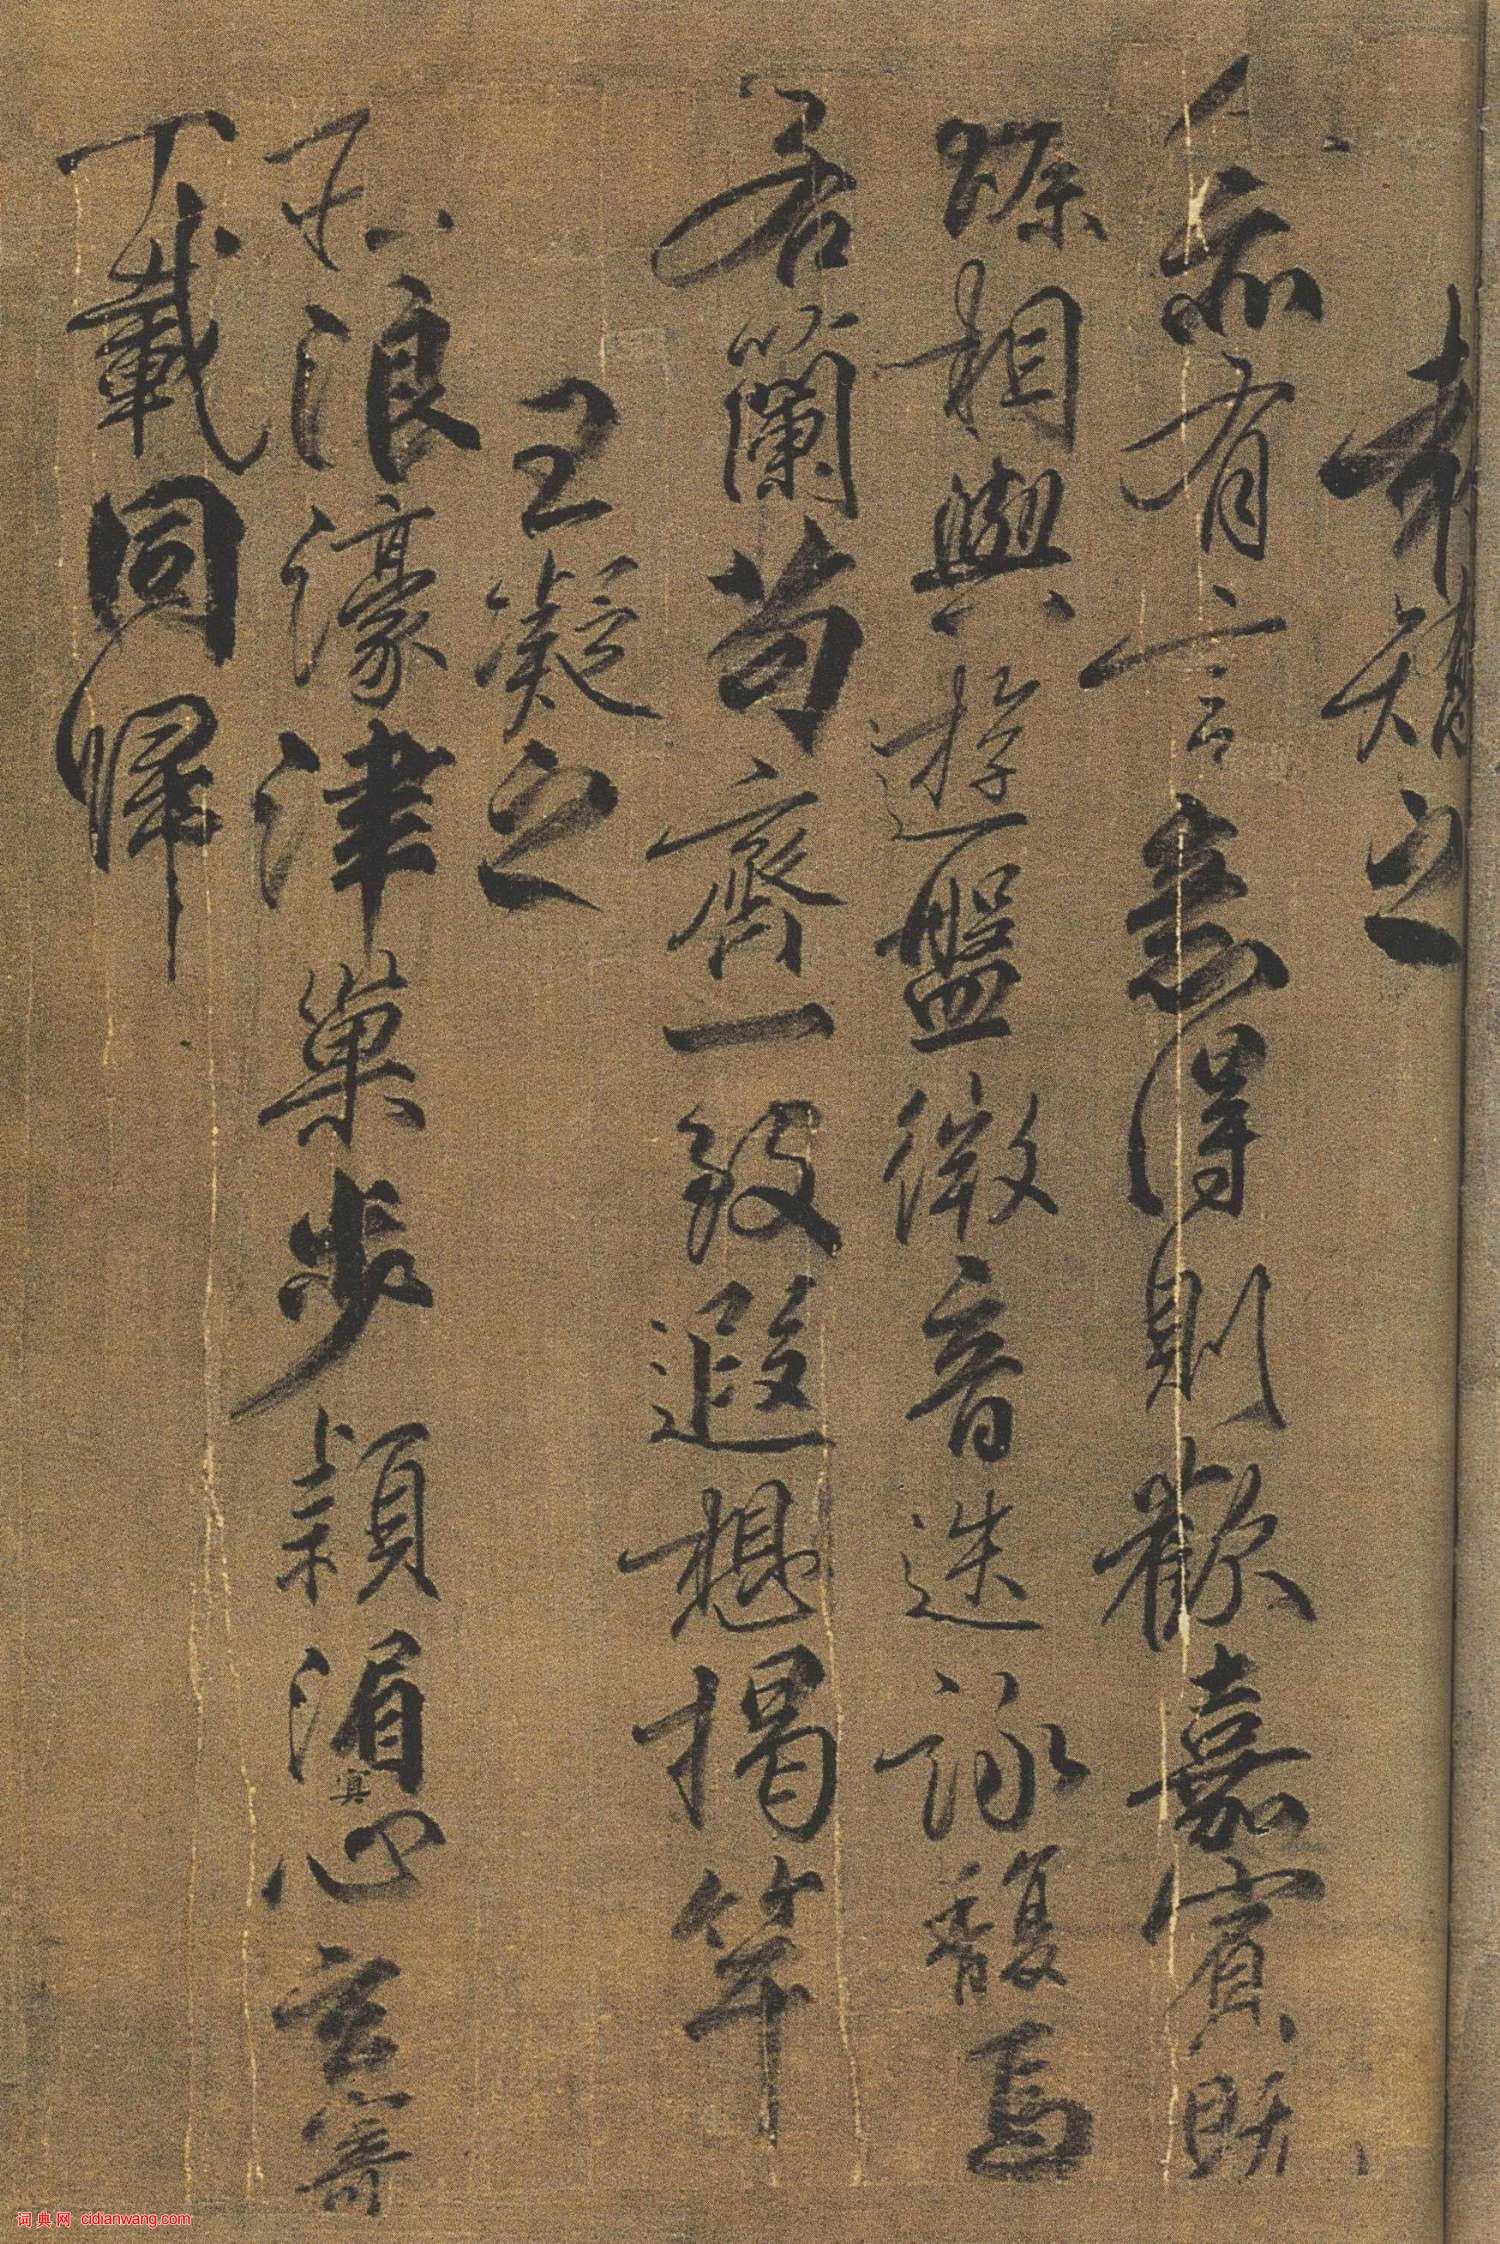 袁矯之
人亦有言意得則歡嘉賓既
臻相與遊盤微音迭詠馥焉
若蘭苟齊一致遐想揭竿
王凝之
莊浪濠津巢步潁湄冥心玄寄
千載同歸
词典网 cidianwang.com